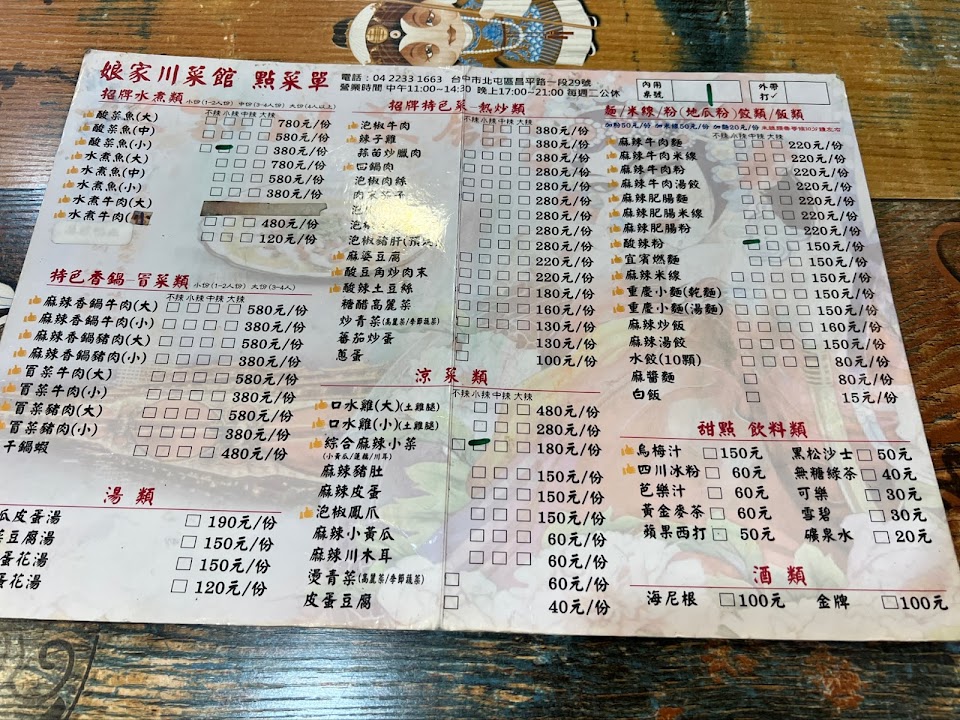 娘家川菜館 點菜單
電話：04 2233 1663 台中市北屯區昌平路一段29號
營業時間 中午11:00~14:30 晚上17:00~21:00 每週二公休
內用桌號 1 外帶打✓
招牌水煮類 小份(1-2人份) 中份(3-4人份) 大份(4人以上)
不辣 小辣 中辣 大辣
酸菜魚(大) 780元/份
酸菜魚(中) 580元/份
酸菜魚(小) 380元/份
水煮魚(大) 780元/份
水煮魚(中) 580元/份
水煮魚(小) 380元/份
水煮牛肉(大)
水煮牛肉( 480元/份
120元/份
特色香鍋-冒菜類 小份(1-2人份) 大份(3-4人)
不辣 小辣 中辣 大辣
麻辣香鍋牛肉(大) 580元/份
麻辣香鍋牛肉(小) 380元/份
麻辣香鍋豬肉(大) 580元/份
麻辣香鍋豬肉(小) 380元/份
冒菜牛肉(大) 580元/份
冒菜牛肉(小) 380元/份
冒菜豬肉(大) 580元/份
冒菜豬肉(小) 380元/份
干鍋蝦 480元/份
湯類
瓜皮蛋湯 190元/份
豆腐湯 150元/份
蛋花湯 150元/份
蛋花湯 120元/份
招牌特色菜-熱炒類
不辣 小辣 中辣 大辣
泡椒牛肉 380元/份
辣子雞 380元/份
蒜苗炒臘肉 380元/份
回鍋肉 280元/份
泡椒肉絲 280元/份
肉末茄子 280元/份
泡 280元/份
泡 280元/份
泡椒豬肝(預 280元/份
麻婆豆腐 220元/份
酸豆角炒肉末 220元/份
酸辣土豆絲 180元/份
糖醋高麗菜 160元/份
炒青菜(高麗菜/季節蔬菜) 130元/份
蕃茄炒蛋 130元/份
蔥蛋 100元/份
涼菜類
不辣 小辣 中辣 大辣
口水雞(大)(土雞腿) 480元/份
口水雞(小)(土雞腿) 280元/份
綜合麻辣小菜 180元/份
(小黃瓜/蓮藕/川耳)
麻辣豬肚 150元/份
麻辣皮蛋 150元/份
泡椒鳳爪 150元/份
麻辣小黃瓜 60元/份
麻辣川木耳 60元/份
燙青菜(高麗菜/季節蔬菜) 60元/份
皮蛋豆腐 40元/份
麵/米線/粉(地瓜粉)餃類/飯類
加粉50元/份 加米線50元/份 加麵20元/份
不辣 小辣 中辣 大辣
麻辣牛肉麵 220元/份
麻辣牛肉米線 220元/份
麻辣牛肉粉 220元/份
麻辣牛肉湯餃 220元/份
麻辣肥腸麵 220元/份
麻辣肥腸米線 220元/份
麻辣肥腸粉 220元/份
酸辣粉 150元/份
宜賓燃麵 150元/份
麻辣米線 150元/份
重慶小麵(乾麵) 150元/份
重慶小麵(湯麵) 150元/份
麻辣炒飯 160元/份
麻辣湯餃 150元/份
水餃(10顆) 80元/份
麻醬麵 80元/份
白飯 15元/份
甜點 飲料類
烏梅汁 150元/份 黑松沙士 50元/份
四川冰粉 60元/份 無糖綠茶 40元/份
芭樂汁 60元/份 可樂 30元/份
黃金麥茶 60元/份 雪碧 30元/份
蘋果西打 50元/份 礦泉水 20元/份
酒類
海尼根 100元/份 金牌 100元/份